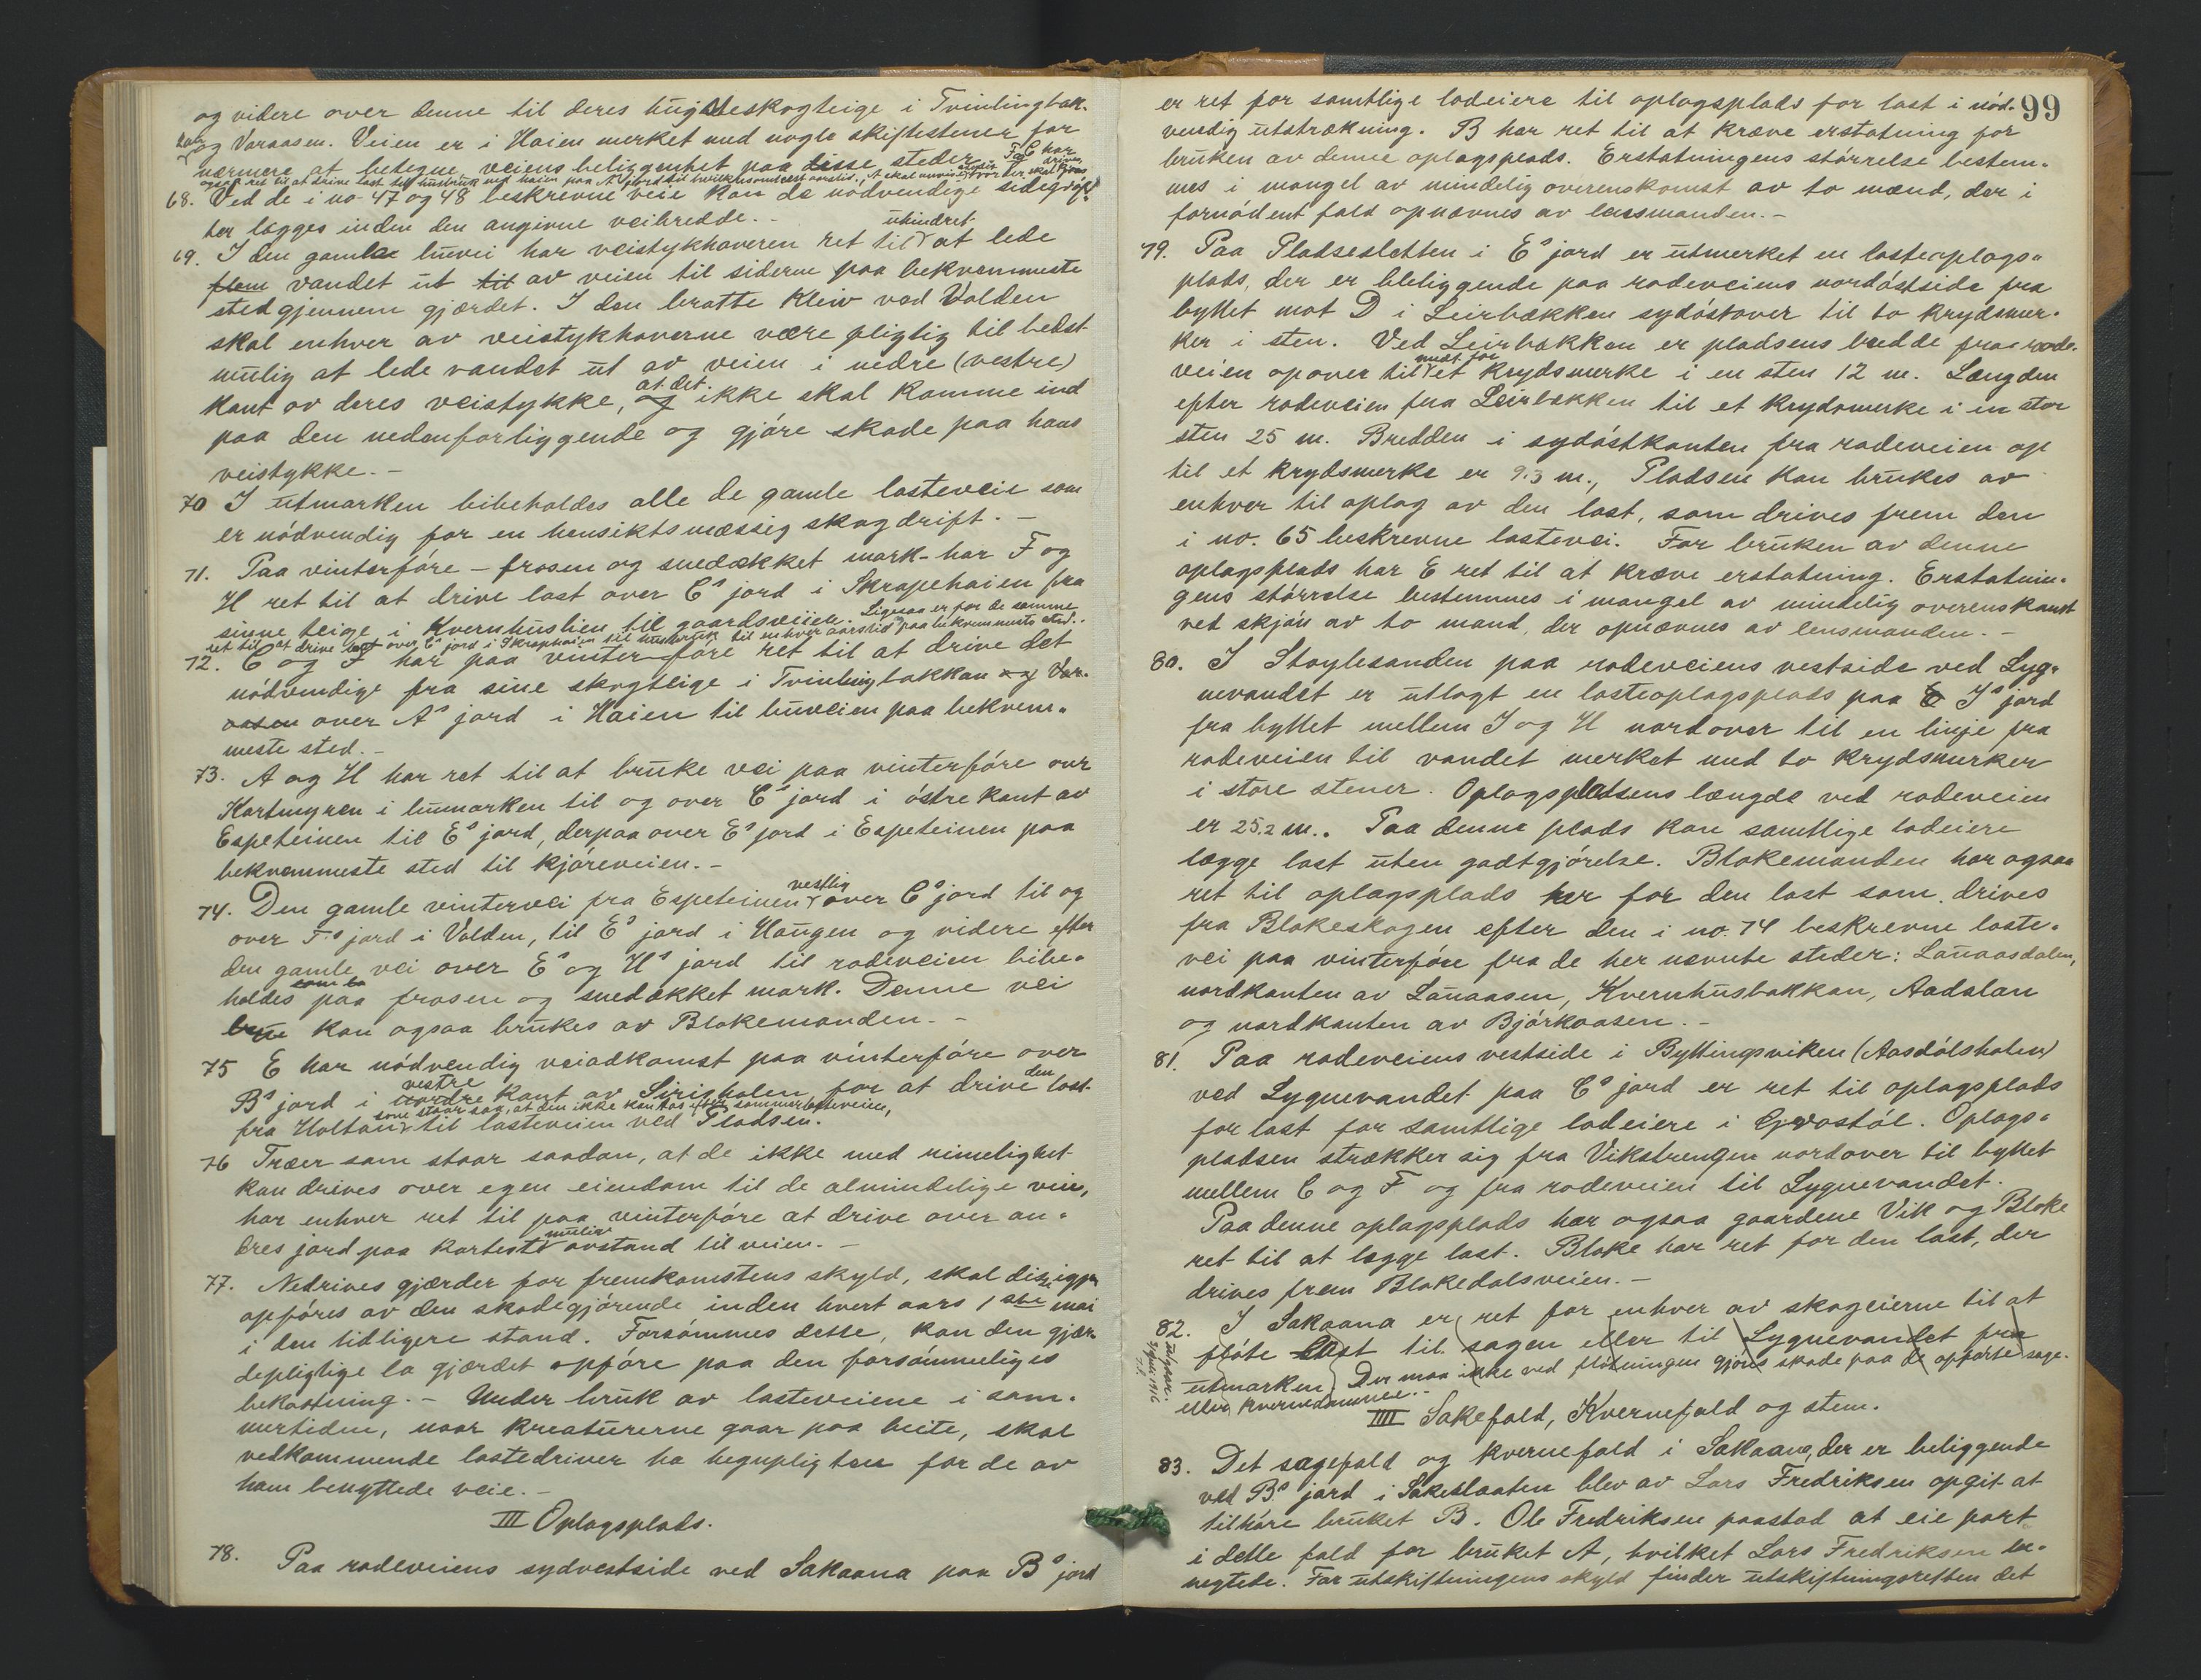 og videre over denne til deres hugdeskogteige i Tvinlingbak-
kan og Varaasen. Veien er i Haien merket med nogle skiftestener for
nærmere at betegne veiens beliggenhet paa disse steder. F og C har
ogsaa ret til at drive last til husbruk ved haien paa A's jord til hvilkensomhelst aarstid. A skal anvise hvor der skal kjøres
68. Ved de i no 47 og 48 beskrevne veie kan de nødvendige sidegrøf-
ter lægges inden den angivne veibredde.-
69. I den gamle buvei har veistykhaveren ret til uhindret at lede
flom vandet ut til av veien til siderne paa bekvemmeste
sted gjennem gjærdet. I den bratte Kleiv ved Valden
skal enhver av veistykhaverne være pligtig til bedst
mulig at lede vandet ut av veien i nedre (vestre)
kant av deres veistykke, og at det ikke skal komme ind
paa den nedenforliggende og gjøre skade paa hans
veistykke.-
70 I utmarken bibeholdes alle de gamle lasteveie som
er nødvendig for en hensiktsmæssig skogdrift.-
71. Paa vinterføre - frosen og snedækket mark - har F og
H ret til at drive last over C's jord i Skrapehaien fra
sinne teige i Kvernhuslien til gaardsveien. Ligesaa er for de samme
ret til at drive last over C's jord i Skrapehaien til husbruk til enhver aarstid paa bekvemmeste sted.
72. C og F har paa vinterføre ret til at drive det
nødvendige fra sine skogteige i Tvinlingbakkan og Var-
aasen over A's jord i Haien til buveien paa bekvem-
meste sted.-
73. A og H har ret til at bruke vei paa vinterføre over
Kortmyren i bumarken til og over C's jord i østre kant av
Espeteinen til E's jord, derpaa over E's jord i Espeteinen paa
bekvemmeste sted til kjøreveien.-
74. Den gamle vintervei fra Espeteinen vestlig over C's jord til og
over F's jord i Valden, til E's jord i Haugen og videre efter
den gamle vei over E's og H's jord til rodeveien bibe-
holdes paa frosen og snedækket mark. Denne vei
kan ogsaa brukes av Blakemanden.-
75 E har nødvendig veiadkomst paa vinterføre over
B's jord i nordre vestre kant av Sirisholen for at drive den last
fra Holtan som staar saa, at den ikke kan tas efter sommerlasteveien, til lasteveien ved Pladsen.
76 Træer som staar saadan, at de ikke med rimelighet
kan drives over egen eiendom til de almindelige veie,
har enhver ret til paa vinterføre at drive over an-
dres jord paa korteste mulig avstand til veien.-
77. Nedrives gjærder for fremkomstens skyld, skal disse igjen
opføres av den skadegjørende inden hvert aars 1ste mai
i den tidligere stand. Forsømmes dette, kan den gjær-
depligtige la gjærdet opføre paa den forsømmeliges
bekostning.- Under bruk av lasteveiene i som-
mertiden, naar kreaturerne gaar paa beite, skal
vedkommende lastedriver ha hegnpligten for de av
ham benyttede veie.-
III Oplagsplads.
78. Paa rodeveiens sydvestside ved Sakaana paa B's jord
99
er ret for samtlige lodeiere til oplagsplads for last i nød-
vendig utstrækning. B har ret til at kræve erstatning for
bruken av denne oplagsplads. Erstatningens størrelse bestem-
mes i mangel av mindelig overenskomst av to mænd, der i
fornødent fald opnævnes av lensmanden.-
79. Paa Pladsesletten i E's jord er utmerket en lasteoplags-
plads, der er beliggende paa rodeveiens nordøstside fra
byttet mot D i Leirbækken sydøstover til to krydsmer-
ker i sten. Ved Leirbækken er pladsens bredde fra rode-
veien opover til midt for et krydsmerke i en sten 12 m. Længden
efter rodeveien fra Leirbækken til et krydsmerke i en stor
sten 25 m. Bredden i sydøstkanten fra rodeveien op
til et krydsmerke er 9.3 m., Pladsen kan brukes av
enhver til oplag av den last, som drives frem den
i no. 65 beskrevne lastevei. For bruken av denne
oplagsplads har E ret til at kræve erstatning. Erstatnin-
gens størrelse bestemmes i mangel av mindelig overenskomst
ved skjøn av to mænd, der opnævnes av lensmanden.-
80. I Støylesanden paa rodeveiens vestside ved Lyg-
nevandet er utlagt en lasteoplagsplads paa I's jord
fra byttet mellem I og H nordover til en linje fra
rodeveien til vandet merket med to krydsmerker
i store stener. Oplagspladsens længde ved rodeveien
er 25.2 m.. Paa denne plads kan samtlige lodeiere
lægge last uten godtgjørelse. Blakemanden har ogsaa
ret til oplagsplads her for den last som drives
fra Blakeskogen efter den i no. 74 beskrevne laste-
vei paa vinterføre fra de her nævnte steder: Lauaasdalen,
nordkanten av Lauaasen, Kvernhusbakkan, Aadalan
og nordkanten av Bjørkaasen.-
81. Paa rodeveiens vestside i Byttingsviken (Aasdølsholen)
ved Lygnevandet paa C's jord er ret til oplagsplads
for last for samtlige lodeiere i Gvastøl. Oplags-
pladsen strækker sig fra Vikstrengen nordover til byttet
mellem C og F og fra rodeveien til Lygnevandet.
Paa denne oplagsplads har ogsaa gaardene Vik og Blake
ret til at lægge last. Blake har ret for den last, der
drives frem Blakedalsveien.-
82. I Sakaana er ret for enhver av skogeierne til at
fløte last til sagen eller til Lygnevandet fra
utmarken. Der maa ikke ved fløtningen gjøres skade paa de opførte sage-
eller kvernedamme.-
utgaar.
IIII Sakefald, Kvernefald og stem.
83. Det sagefald og kvernefald i Sakaana, der er beliggende
ved B's jord i Sakeslaaten blev av Lars Fredriksen opgit at
tilhøre bruket B. Ole Fredriksen paastod at eie part
i dette fald for bruket A, hvilket Lars Fredriksen be-
negtede. For utskiftningens skyld finder utskiftningsretten det